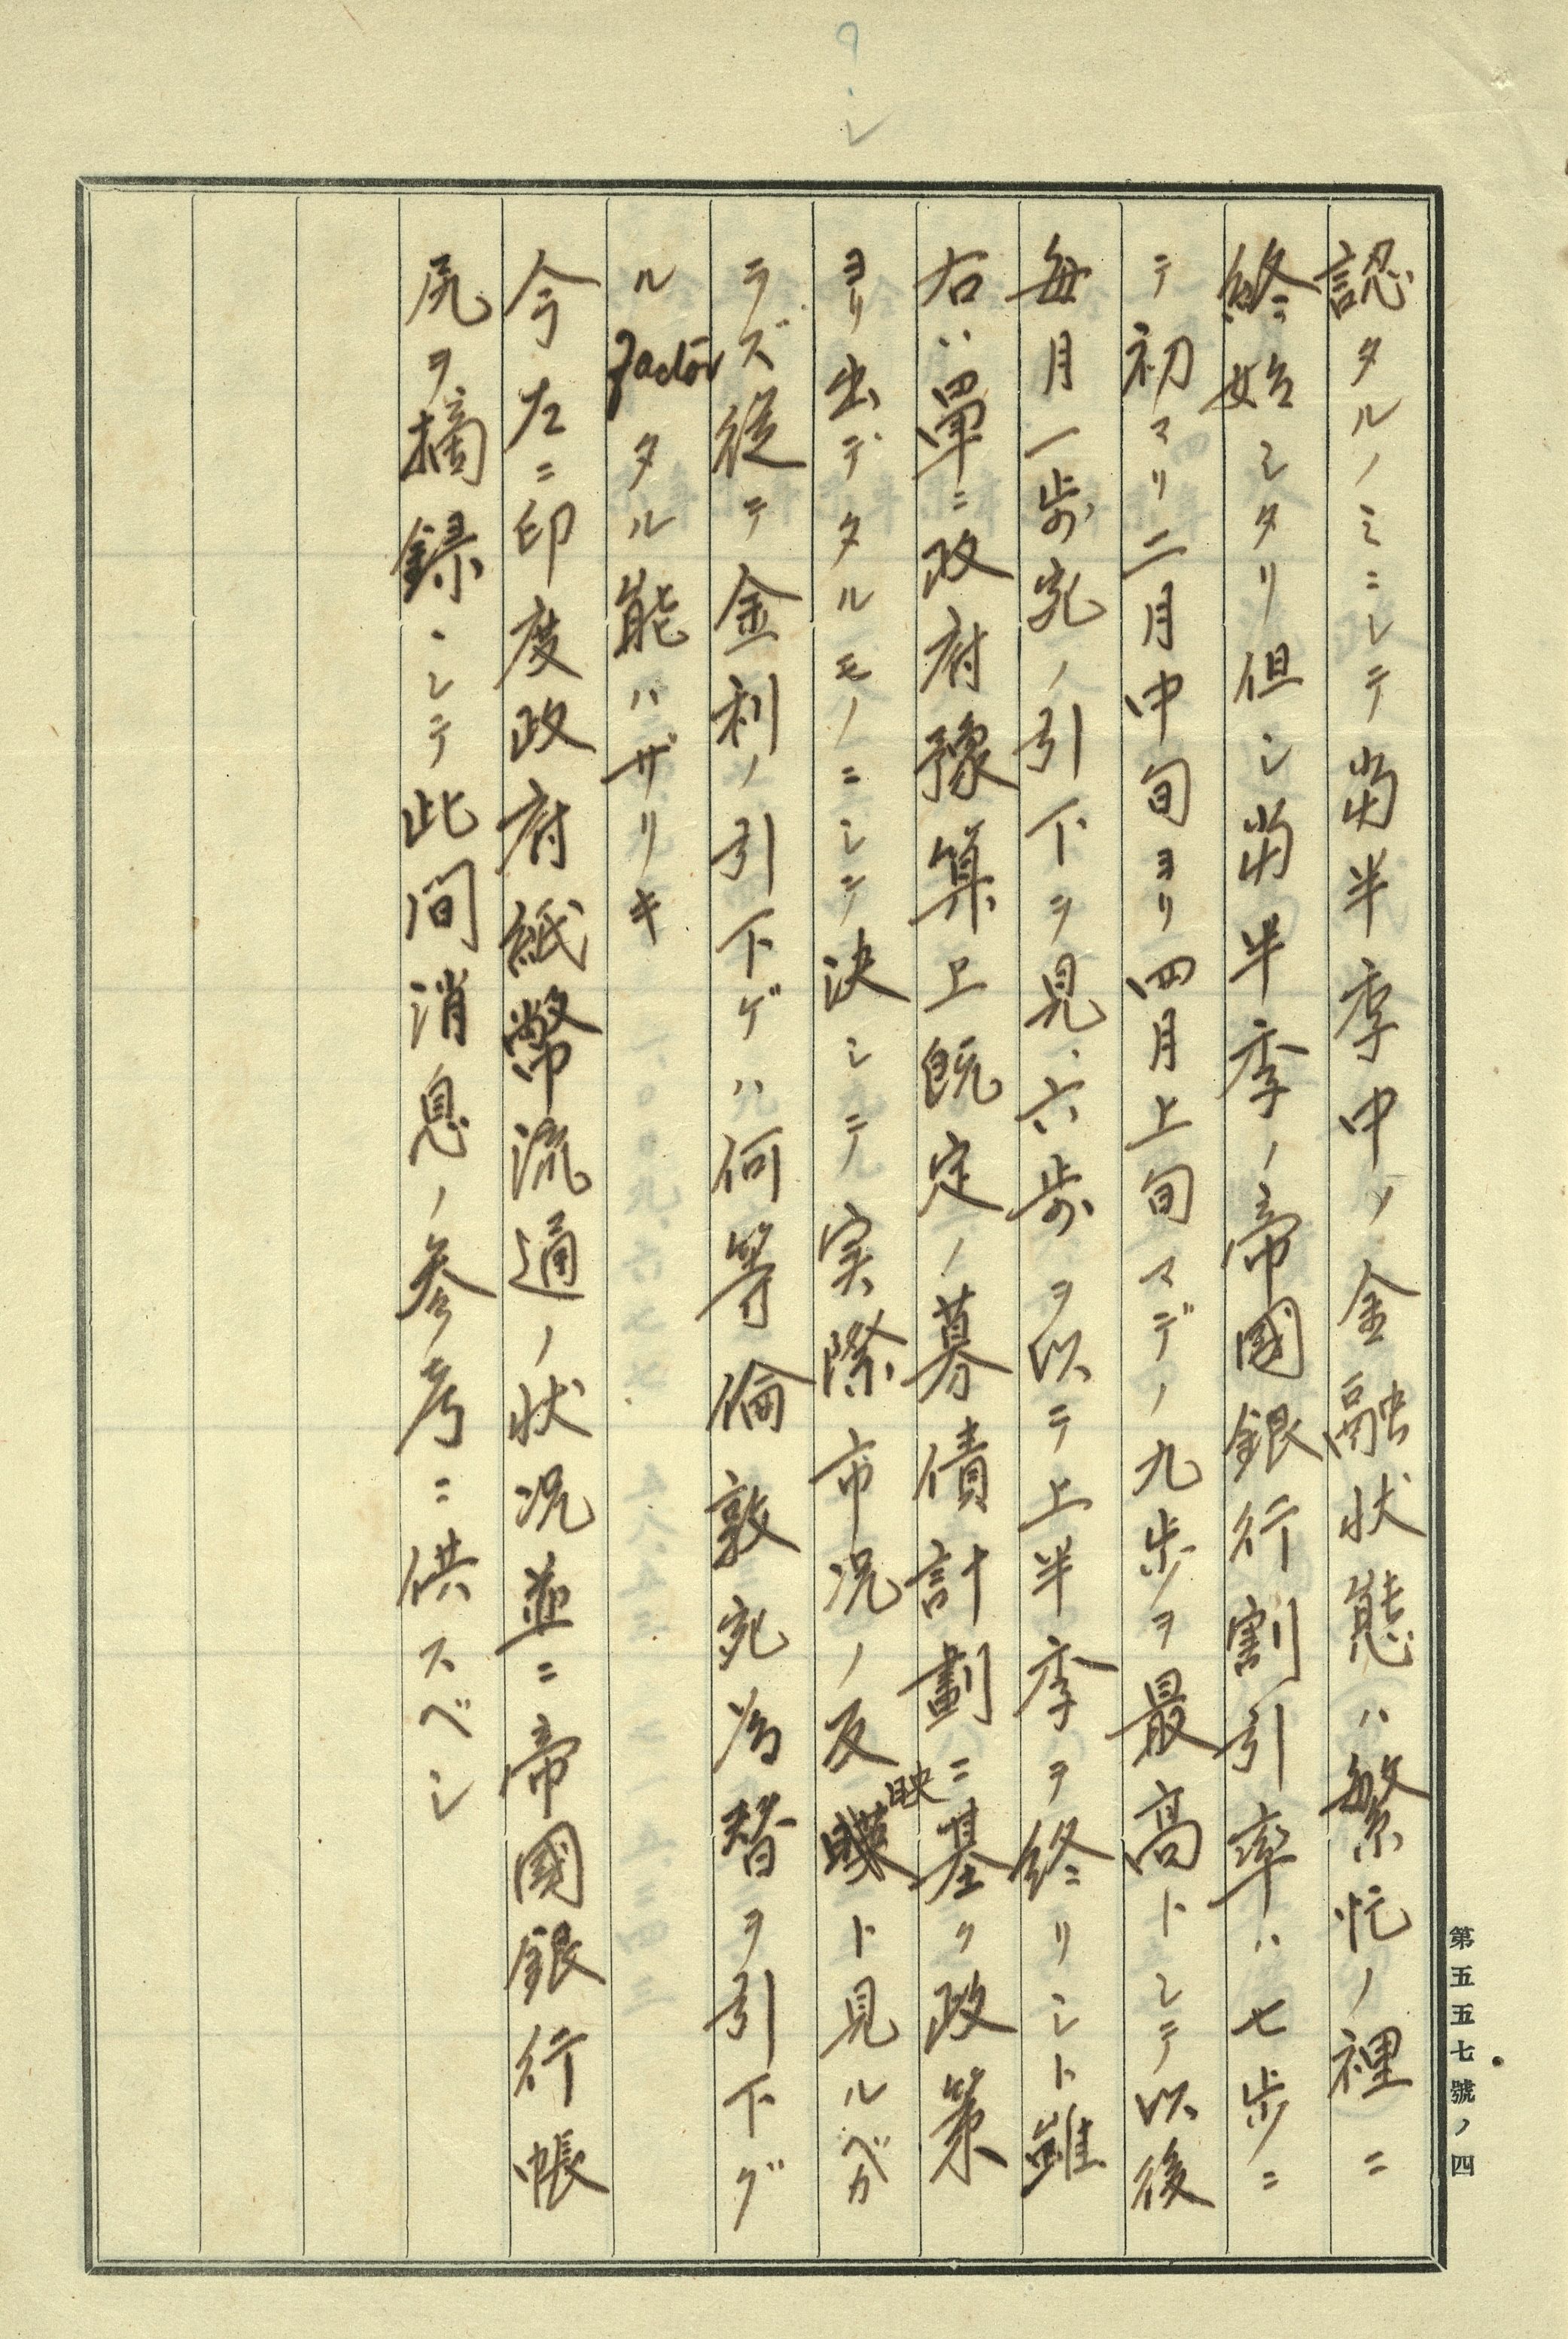 認タルノミニシテ当半季中ノ金融状態ハ繁忙ノ裡ニ
終始シタリ但シ当半季ノ帝國銀行割引率ハ七歩ニ
テ初マリ二月中旬ヨリ四月上旬マデノ九歩ヲ最高トシテ以後
毎月一歩宛ノ引下ヲ見、六歩ヲ以テ上半季ヲ終リシト雖
右ハ單ニ政府豫算上既定ノ募債計劃ニ基ク政策
ヨリ出デタルモノニシテ決シテ実際市況ノ反映ト見ルベカ
ラズ従テ金利ノ引下ゲハ何等倫敦宛為替ヲ引下グ
ル factor タル能ハザリキ
今左ニ印度政府紙幣流通ノ状況並ニ帝國銀行帳
尻ヲ摘録シテ此間消息ノ参考ニ供スベシ
第五五七號ノ四